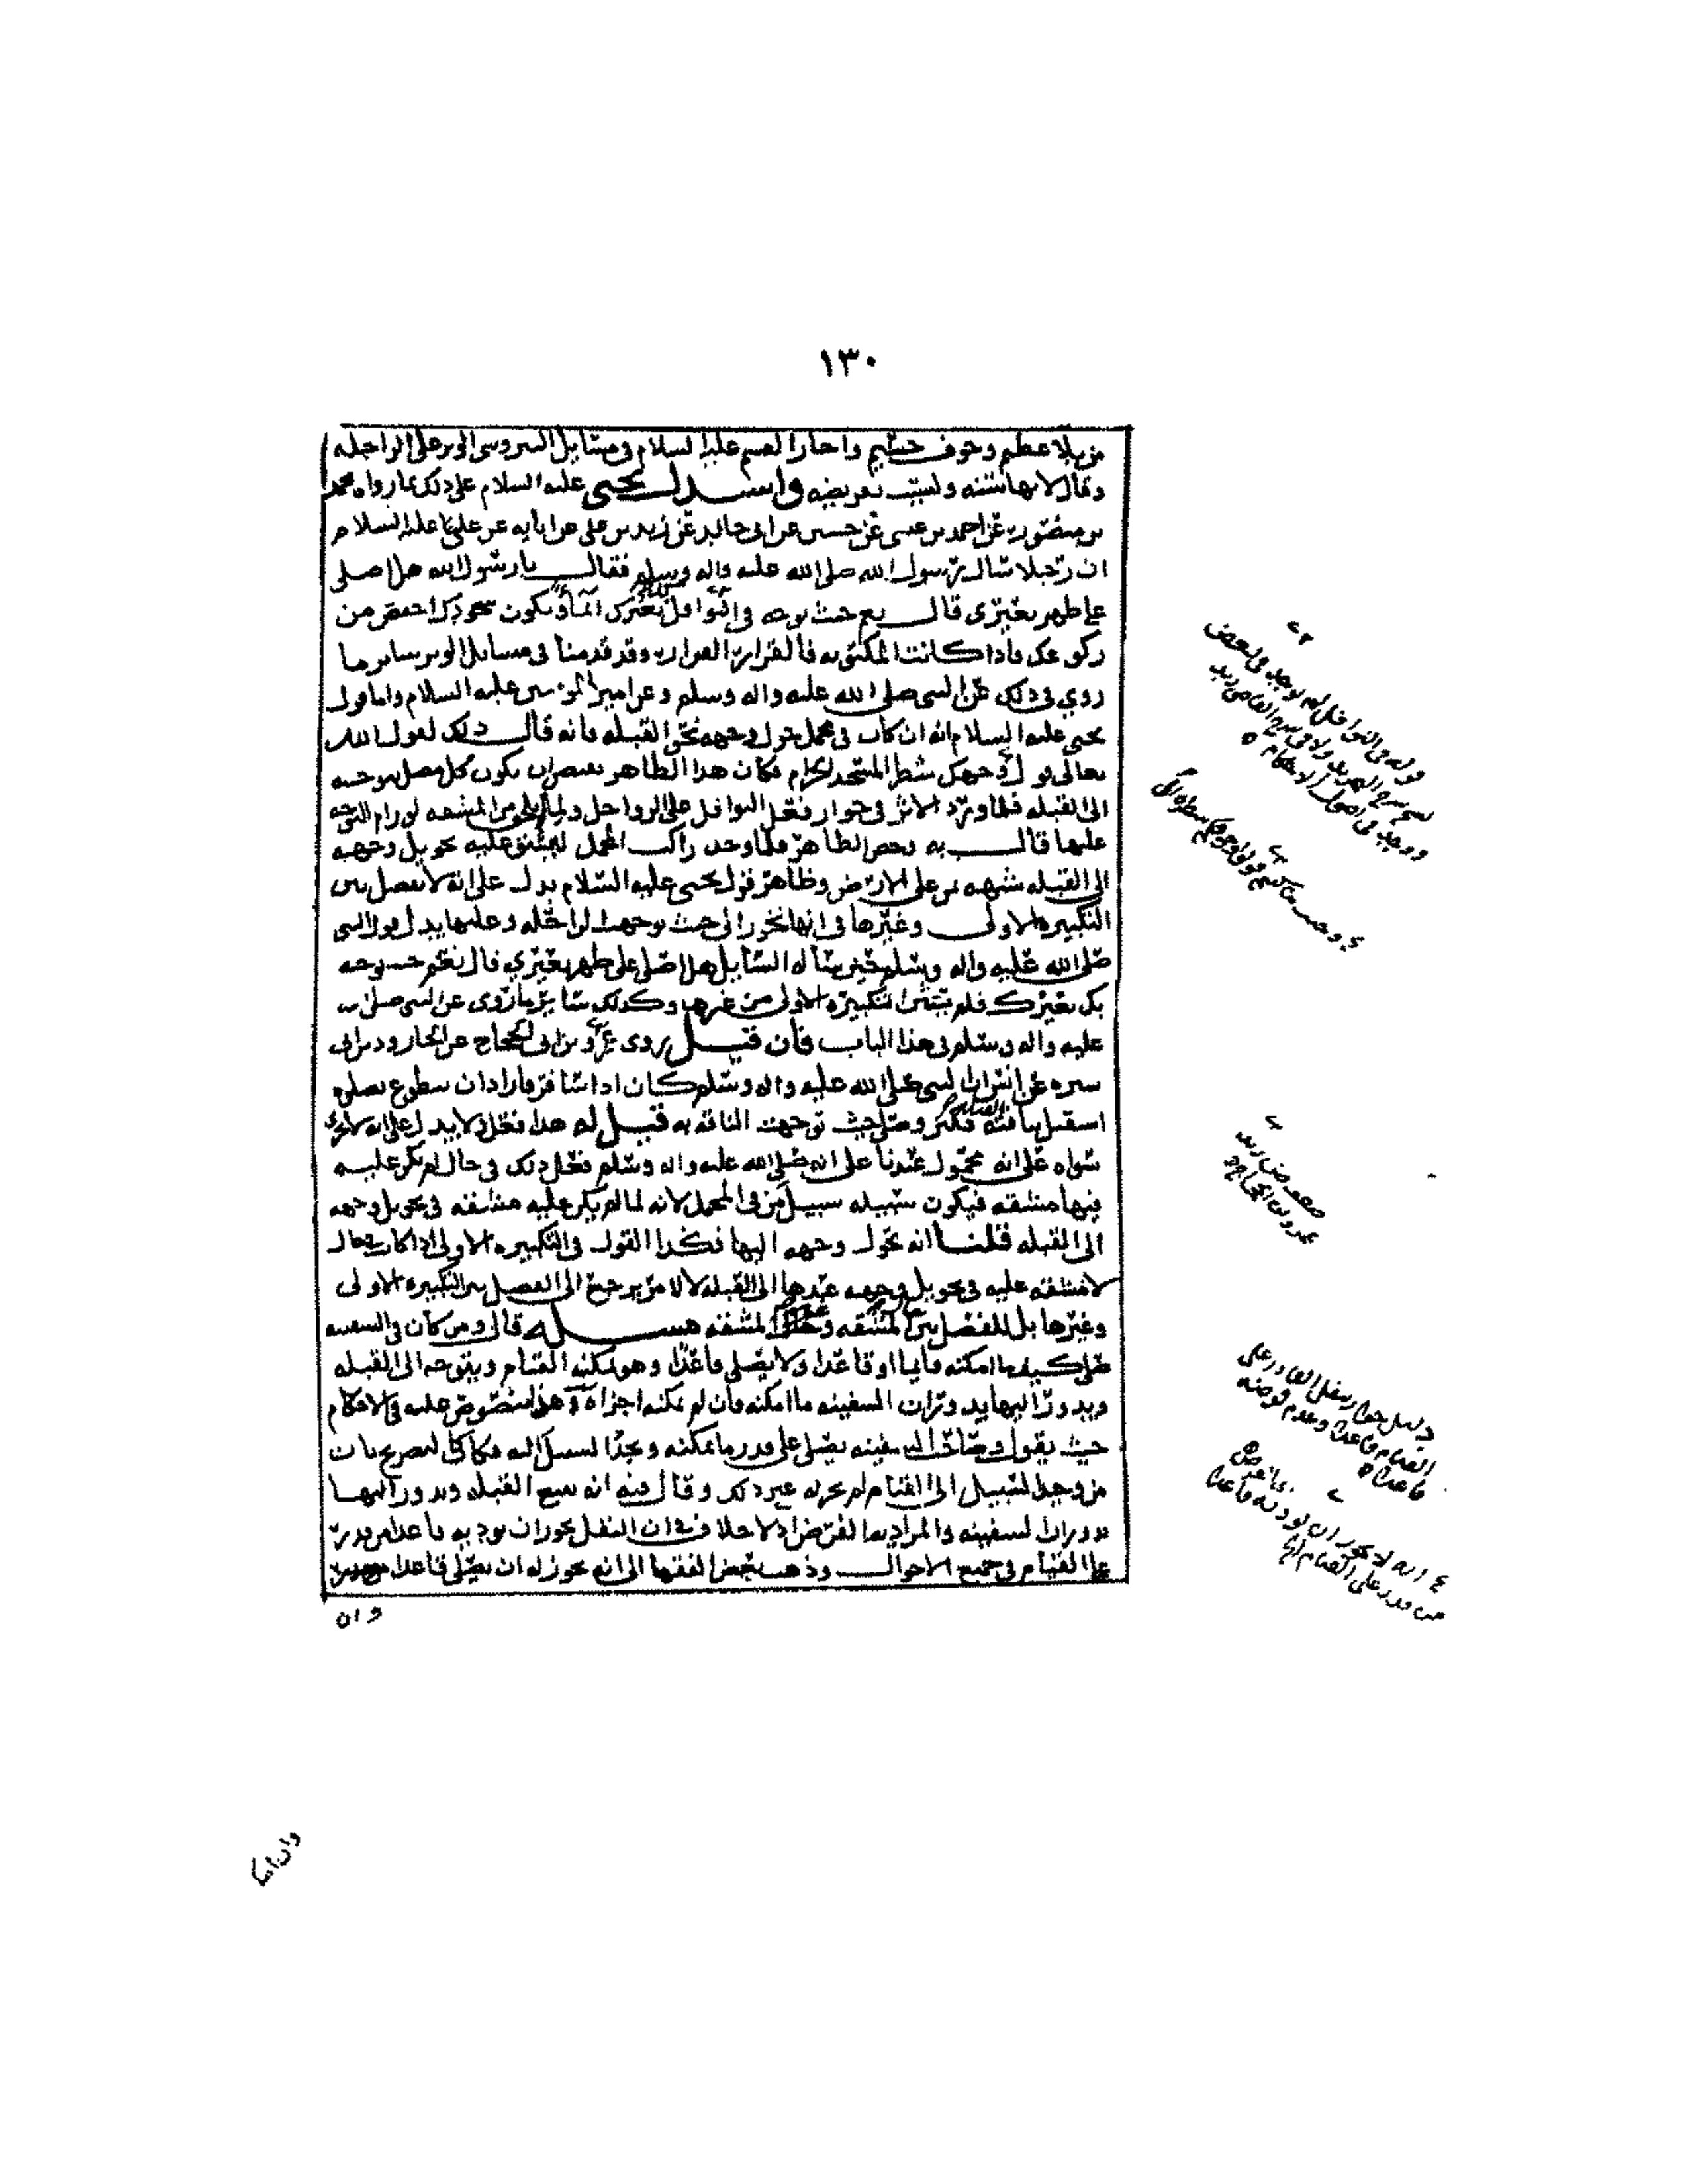 ١٣٠
من بلا عظيم وخوف جسيم واجاز القسم عليه السلام في مسايل النيروسي الوتر على الراحله
وقال لانها سنه وليست بفريضه واستدل يحيى عليه السلام على ذلك بما رواه محمد
بن منصور عن احمد بن عيسى عن حسين عن ابي خالد عن زيد بن علي عن ابايه عن علي عليه السلام
ان رجلا سال رسول الله صلى الله عليه واله وسلم فقال يا رسول الله هل اصلي
على ظهر بعيري قال نعم حيث توجه في النوافل بعيرك ايماء ويكون سجودك اخفض من
ركوعك فاذا كانت المكتوبه فالقرار القرار وقد قدمنا في مسايل الوتر ساير ما
روي في ذلك عن النبي صلى الله عليه واله وسلم وعن امير المؤمنين عليه السلام واما قول
يحيى عليه السلام انه ان كان في محمل حول وجهه نحو القبله فانه قال ذلك لقول الله
تعالى فول وجهك شطر المسجد الحرام فكان هذا الظاهر يقتضي ان يكون كل مصل يتوجه
الى القبله فلما ورد الاثر في جواز فعل النوافل على الرواحل ولما يلحق من المشقه لو رام التوجه
عليها قال به وخص الظاهر فلما وجد راكب المحمل لا يشق عليه تحويل وجهه
الى القبله شبهه بمن على الارض وظاهر قول يحيى عليه السلام يدل على انه لا يفصل بين
التكبيره الاولى وغيرها في انها تجوز الى حيث توجهت الراحله وعليها يدل قول النبي
صلى الله عليه واله وسلم حين سأله السايل هل اصلي على ظهر بعيري قال نعم حيث توجه
بك بعيرك فلم يستثن التكبيره الاولى من غيرها وكذلك ساير ما روي عن النبي صلى الله
عليه واله وسلم في هذا الباب فان قيل روي عن عمرو بن ابي الحجاج عن الجارود بن ابي
سبره عن انس ان النبي صلى الله عليه واله وسلم كان اذا سافر فاراد ان يتطوع بصلوه
استقبل بناقته القبله فكبر وصلى حيث توجهت الناقه به قيل له هذا فعل ولا يدل على انه لا يجزي
سواه على انه محمول عندنا على انه صلى الله عليه واله وسلم فعل ذلك في حال لم تكن عليه
فيها مشقه فيكون سبيله سبيل من في المحمل لانه لما لم يكن عليه مشقه في تحويل وجهه
الى القبله قلنا انه يحول وجهه اليها فكذا القول في التكبيره الاولى اذا كانت بحال
لا مشقه عليه في تحويل وجهه عندها الى القبله لا لامر يرجع الى الفصل بين التكبيره الاولى
وغيرها بل للفصل بين المشقه وعدم المشقه مسـله قال ومن كان في السفينه
صلى كيف ما امكنه قايما او قاعدا ولا يصلي قاعدا وهو يمكنه القيام ويتوجه الى القبله
ويدور اليها بدوران السفينه ما امكنه فان لم يمكنه اجزاه وهذا منصوص عليه في الاحكام
حيث يقول وصاحب السفينه يصلي على قدر ما يمكنه ويجد السبيل اليه فكان كالتصريح بان
من وجد السبيل الى القيام لم يجزه غير ذلك وقال فيه انه يتبع القبله ويدور اليها
بدوران السفينه والمراد بها الفرض اذ لا خلاف في ان النفل يجوز ان يوديه قاعدا من قدر
على القيام في جميع الاحوال وذهب بعض الفقها الى انه يجوز له ان يصلي قاعدا
وان
قوله في النوافل لم يوجد في بعض
ووجد في اصول الاحكام
دليل جواز نفل القادر على
القيام قاعدا وعدم فرضه
قاعدا
انه لا يجوز ان يوديه قاعدا
من قدر على القيام